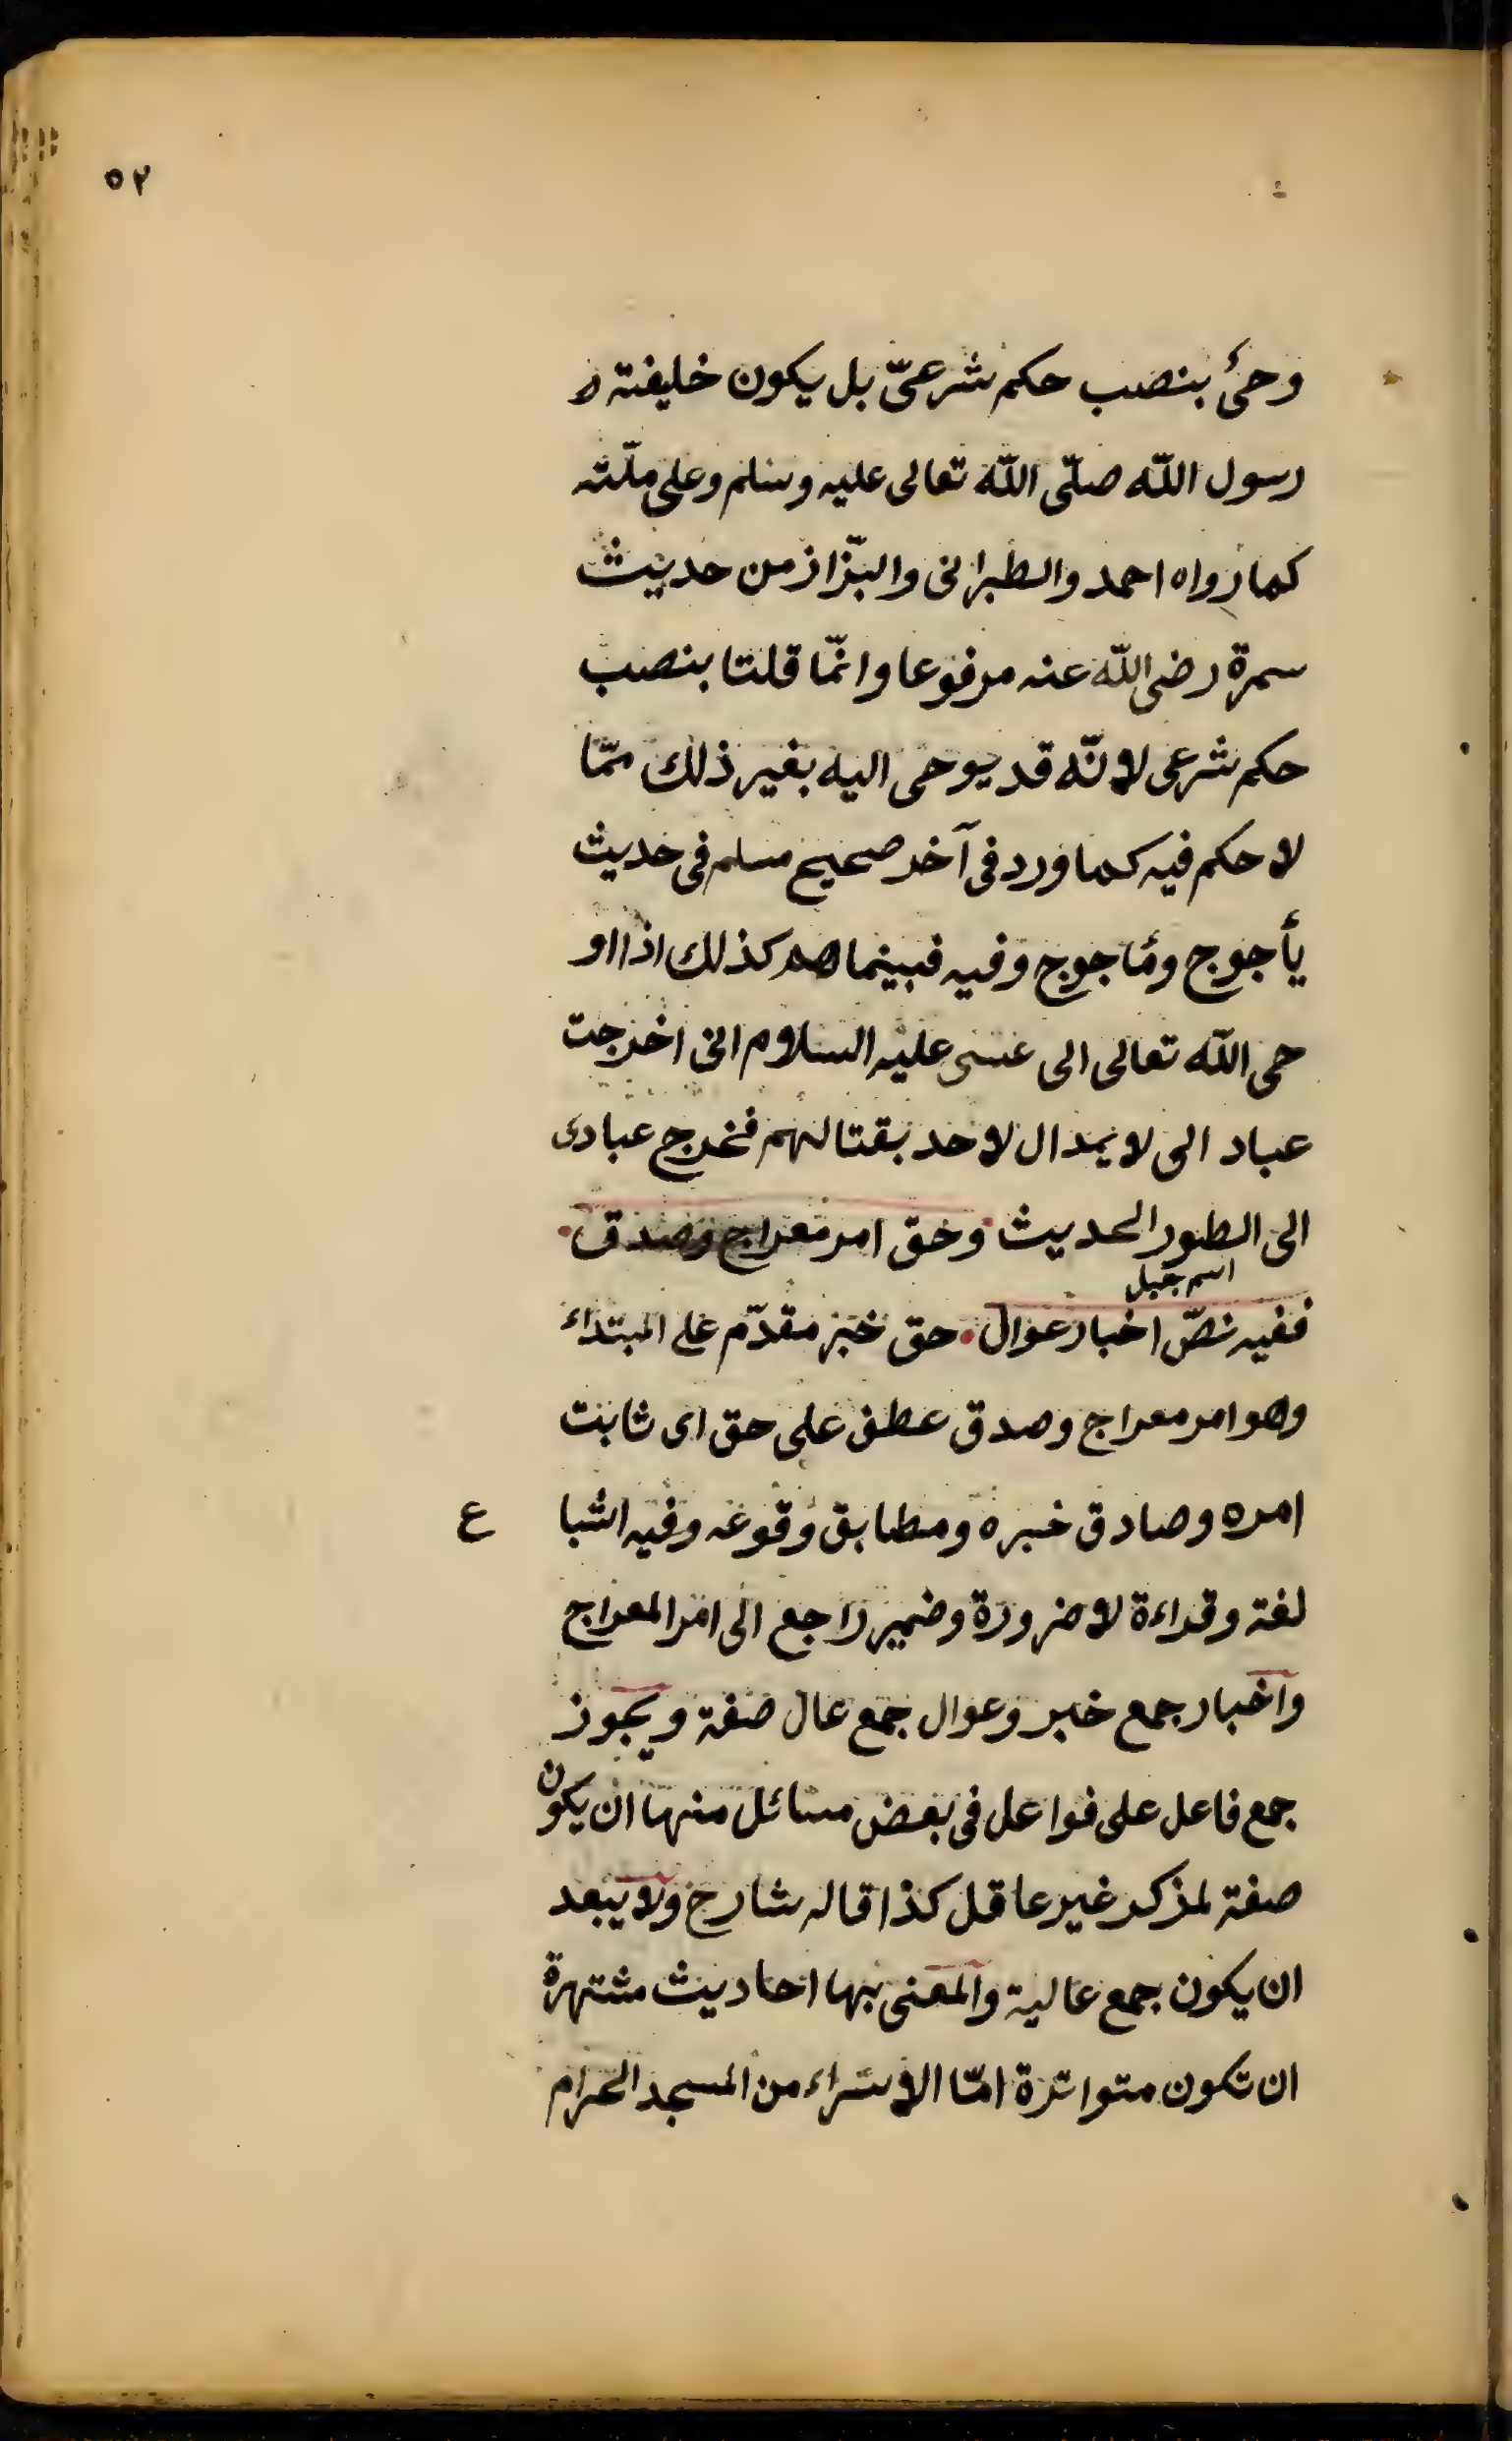 ٥٢
وحئ بنصب حكم شرعىّ بل يكون خليفته
رسول اللّه صلّى اللّه تعالى عليه وسلم وعلى ملّته
كما رواه احمد والطبرانى والبزّار من حديث
سمرة رضى اللّه عنه مرفوعا وانّما قلنا بنصب
حكم شرعى لانّه قد يوحى اليه بغير ذلك ممّا
لا حكم فيه كما ورد فى آخر صحيح مسلم فى حديث
يأجوج ومأجوج وفيه فبينما هم كذلك اذا او
حى اللّه تعالى الى عيسى عليه السلام انى اخرجت
عباد الى لا يدال لاحد بقتالهم فخرج عبادى
الى الطور الحديث وحق امر معراج وصدق
اسم جبل
ففيه نصّ اخبار عوال حق خبر مقدّم على المبتداء
وهو امر معراج وصدق عطف على حق اى ثابت
امره وصادق خبره ومطابق وقوعه وفيه اشبا ع
لغة وقراءة لا ضرورة وضمير راجع الى امر المعراج
واخبار جمع خبر وعوال جمع عال صفة ويجوز
جمع فاعل على فواعل فى بعض مسائل منها ان يكون
صفة لمذكر غير عاقل كذا قاله شارح ولا يبعد
ان يكون جمع عالية والمعنى بها احاديث مشتهرة
ان تكون متواترة امّا الاسراء من المسجد الحرام